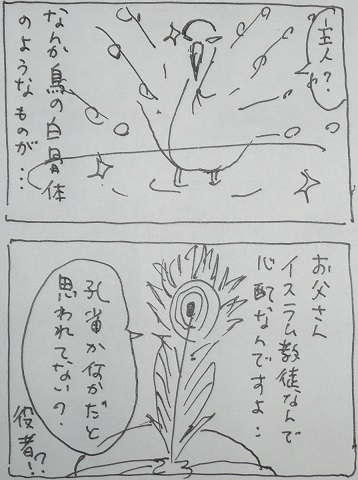 主人?
なんか鳥の白骨体
のようなものが…
お父さん
イスラム教徒なんで
心配なんですよ…
孔雀かなかだと
思われてない?
役者!?